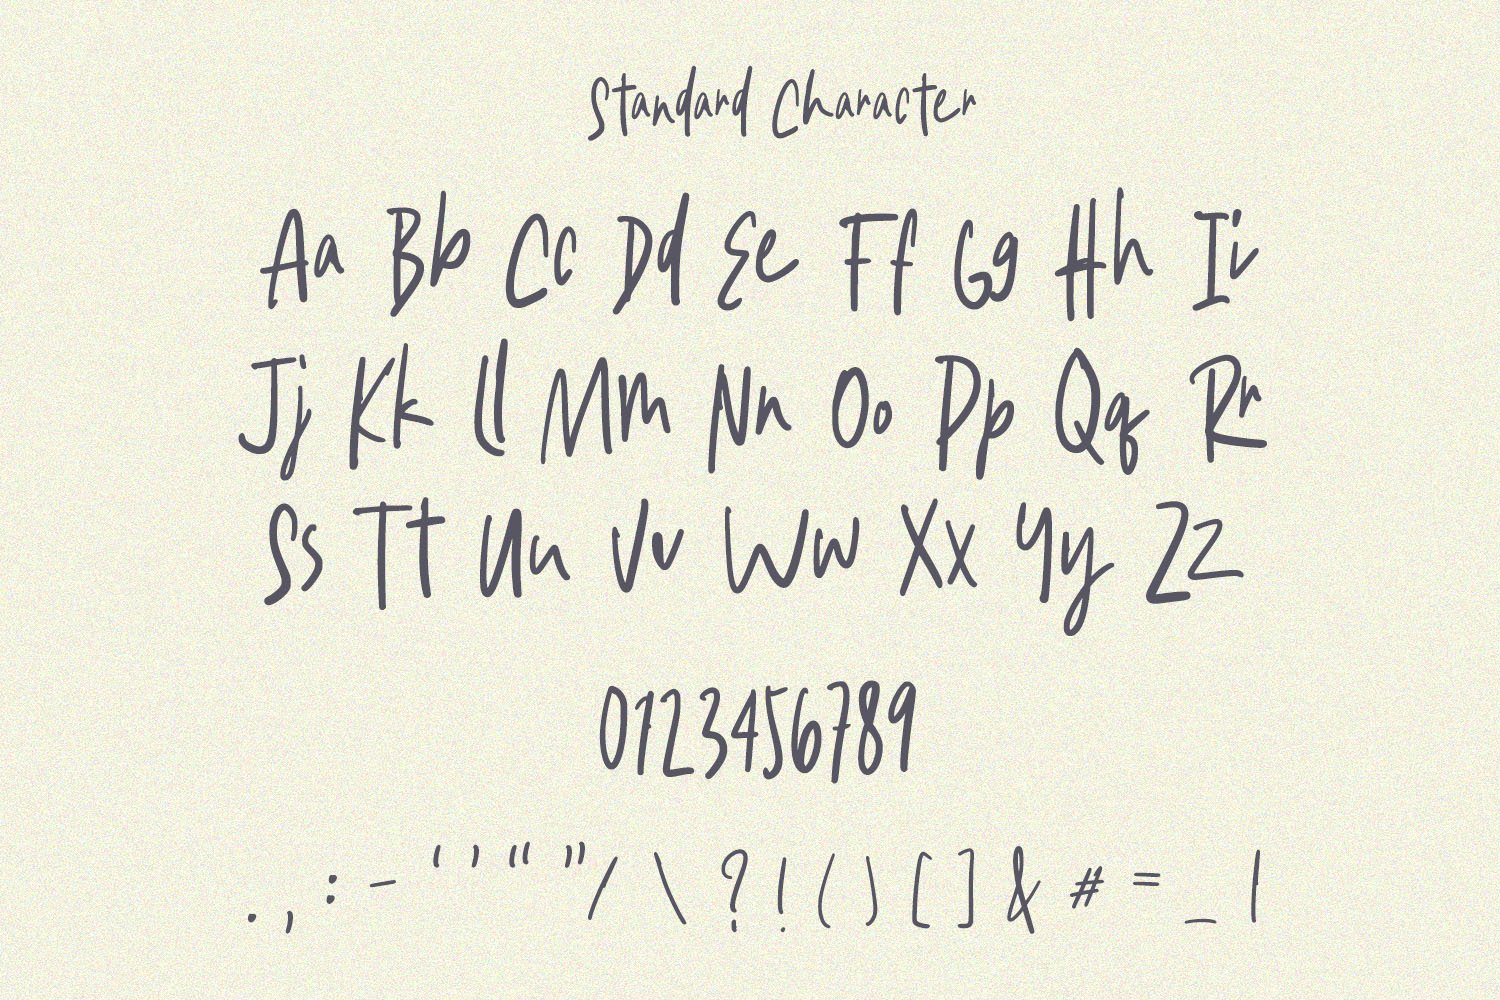 Standard Character
Aa Bb Cc Dd Ee Ff Gg Hh Ii
Jj Kk Ll Mm Nn Oo Pp Qq Rr
Ss Tt Uu Vv Ww Xx Yy Zz
0123456789
. , : - ‘ ’ “ ” / \ ? ! ( ) [ ] & # = _ |